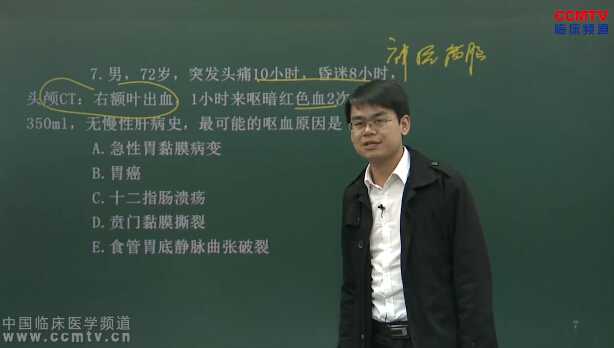 CCMTV
临床频道
7.男，72岁，突发头痛10小时，昏迷8小时，
头颅CT：右额叶出血，1小时来呕暗红色血2次
350ml，无慢性肝病史，最可能的呕血原因是
A.急性胃黏膜病变
B.胃癌
C.十二指肠溃疡
D.贲门黏膜撕裂
E.食管胃底静脉曲张破裂
中国临床医学频道
www.ccmtv.cn
7